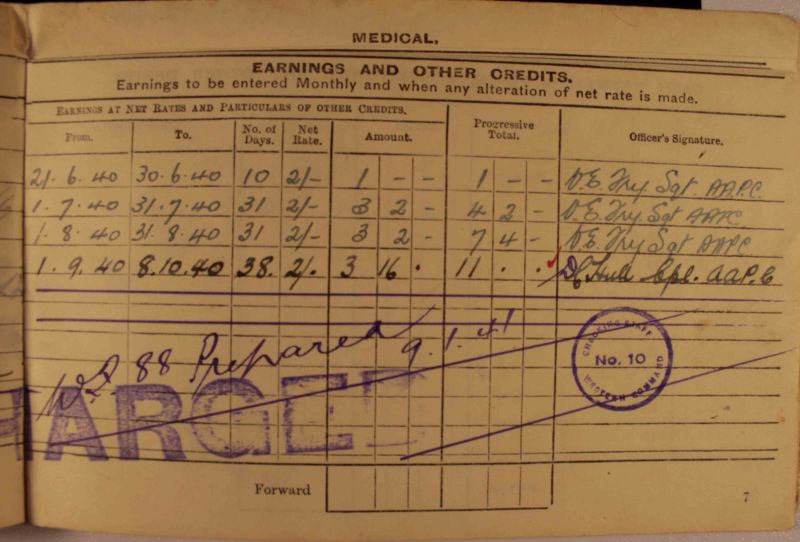 MEDICAL.
EARNINGS AND OTHER CREDITS.
Earnings to be entered Monthly and when any alteration of net rate is made.
EARNINGS AT NET RATES AND PARTICULARS OF OTHER CREDITS.
From. To. No. of Days. Net Rate. Amount. Progressive Total. Officer's Signature.
21.6.40 30.6.40 10 2/- 1 - - 1 - - D.E. Fry Sgt AAPC.
1.7.40 31.7.40 31 2/- 3 2 - 4 2 - D.E. Fry Sgt AAPC
1.8.40 31.8.40 31 2/- 3 2 - 7 4 - D.E. Fry Sgt AAPC
1.9.40 8.10.40 38. 2/. 3 16 . 11 . . Hull Cpl. AAPC
88 Prepared 9.1.41
CHECKING STAFF
No. 10
WESTERN COMMAND
HARGED
Forward
7